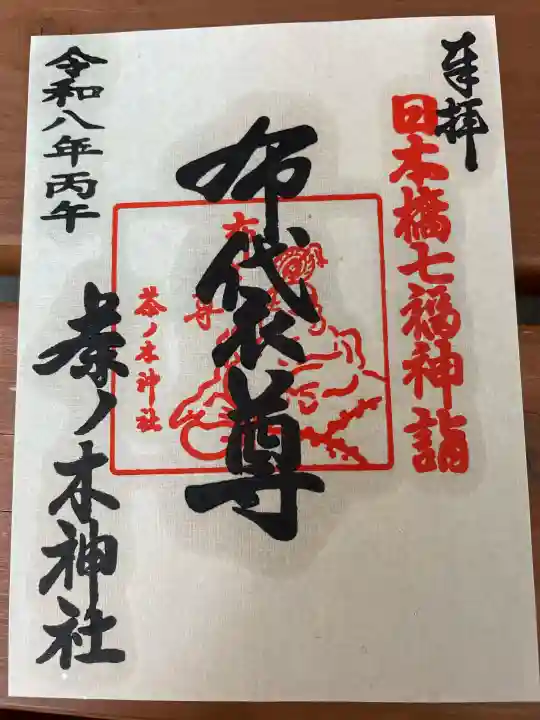 奉拝
日本橋七福神詣
布袋尊
布
尊
茶ノ木神社
令和八年丙午
茶ノ木神社